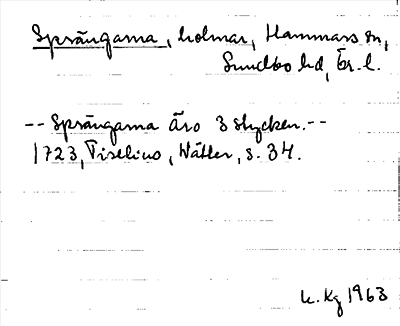 Sprängarna, holmar, Hammars sn,
Sundbo hd, Ör. l.
-- Sprängarna äro 3 stycken. --
1723, Tiselius, Vätter, s. 34.
K. Kg 1963